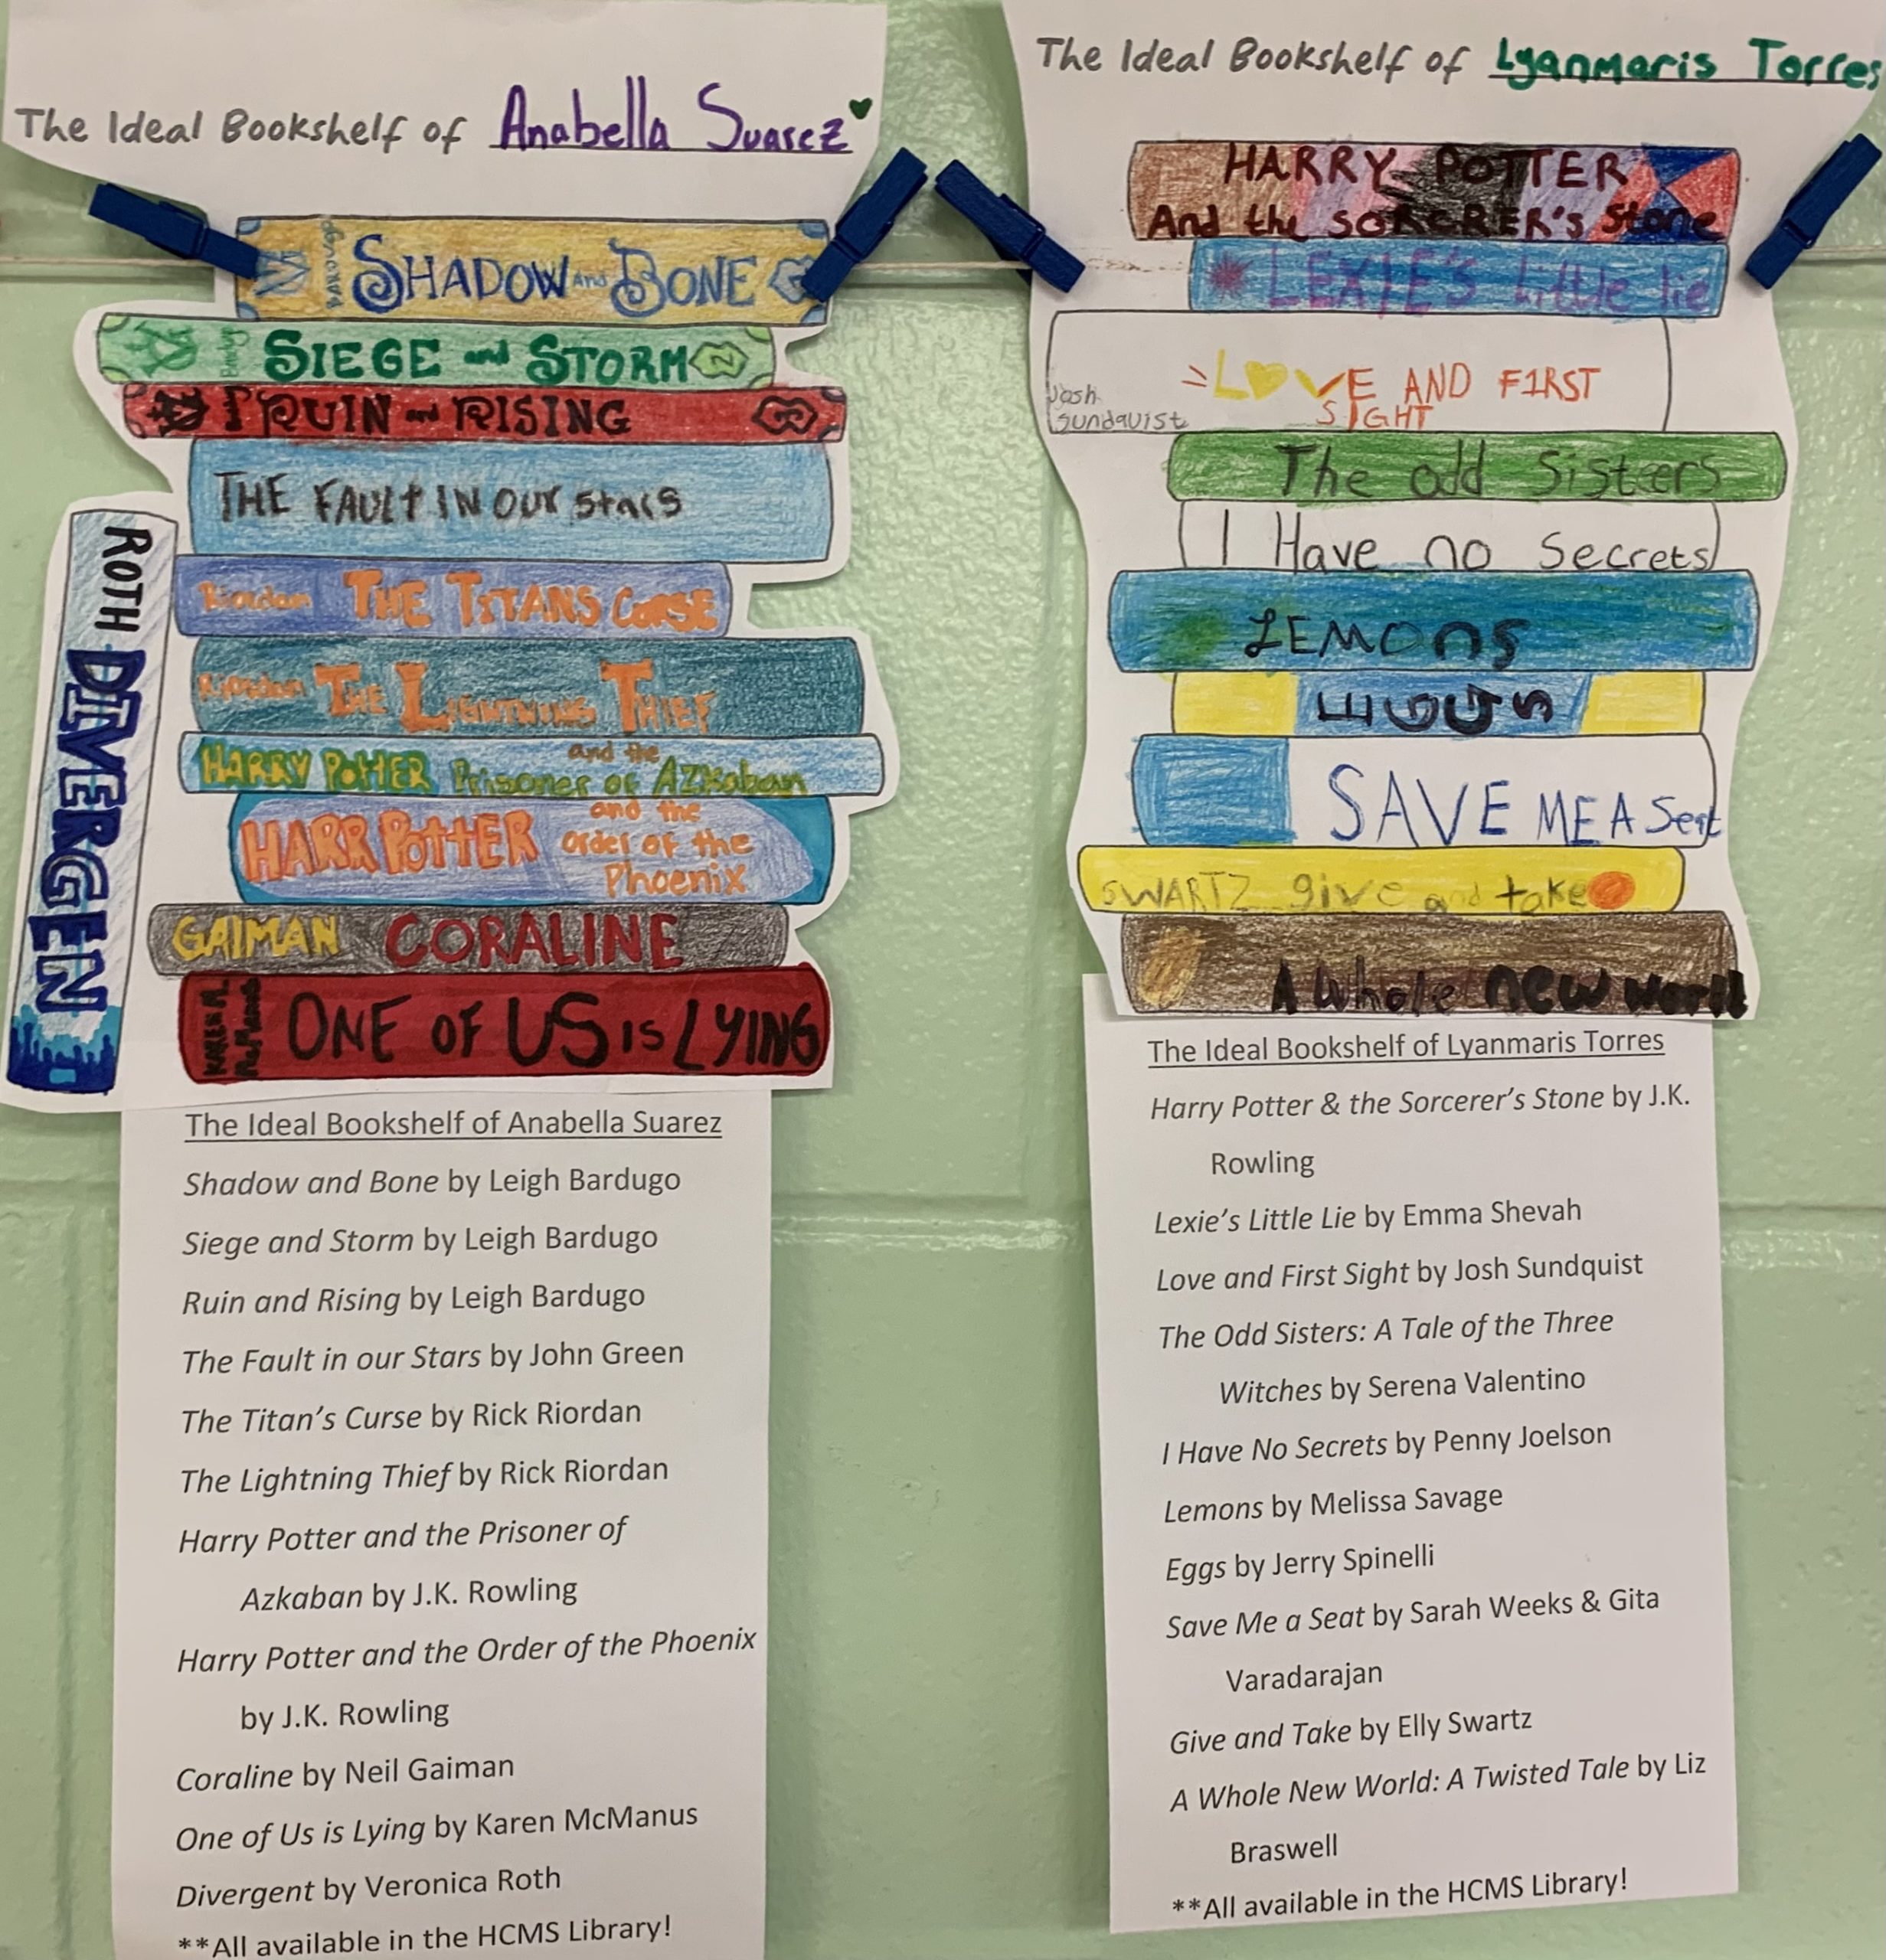 The Ideal Bookshelf of Anabella Suarez
BARDUGO SHADOW AND BONE
SIEGE and STORM
RUIN and RISING
THE FAULt IN OUr Stars
Riordan THE TITANS CURSE
Riordan THE LIGHTNING THIEF
HARRY POTTER and the Prisoner of AZKaban
HARR POTTER and the
order of the
Phoenix
GAIMAN CORALINE
KAREN M. McManus ONE OF US is LYING
ROTH DIVERGEN
The Ideal Bookshelf of Anabella Suarez
Shadow and Bone by Leigh Bardugo
Siege and Storm by Leigh Bardugo
Ruin and Rising by Leigh Bardugo
The Fault in our Stars by John Green
The Titan's Curse by Rick Riordan
The Lightning Thief by Rick Riordan
Harry Potter and the Prisoner of
Azkaban by J.K. Rowling
Harry Potter and the Order of the Phoenix
by J.K. Rowling
Coraline by Neil Gaiman
One of Us is Lying by Karen McManus
Divergent by Veronica Roth
**All available in the HCMS Library!
The Ideal Bookshelf of Lyanmaris Torres
HARRY POTTER
And the SORCRER's Stone
LEXIE'S Little lie
LOVE AND F1RST
SIGHT
Josh
Sundquist
The odd Sisters
I Have no Secrets
LEMONS
EGGS
SAVE ME A Seat
SWARTZ give and take
A Whole new World
The Ideal Bookshelf of Lyanmaris Torres
Harry Potter & the Sorcerer's Stone by J.K.
Rowling
Lexie's Little Lie by Emma Shevah
Love and First Sight by Josh Sundquist
The Odd Sisters: A Tale of the Three
Witches by Serena Valentino
I Have No Secrets by Penny Joelson
Lemons by Melissa Savage
Eggs by Jerry Spinelli
Save Me a Seat by Sarah Weeks & Gita
Varadarajan
Give and Take by Elly Swartz
A Whole New World: A Twisted Tale by Liz
Braswell
**All available in the HCMS Library!